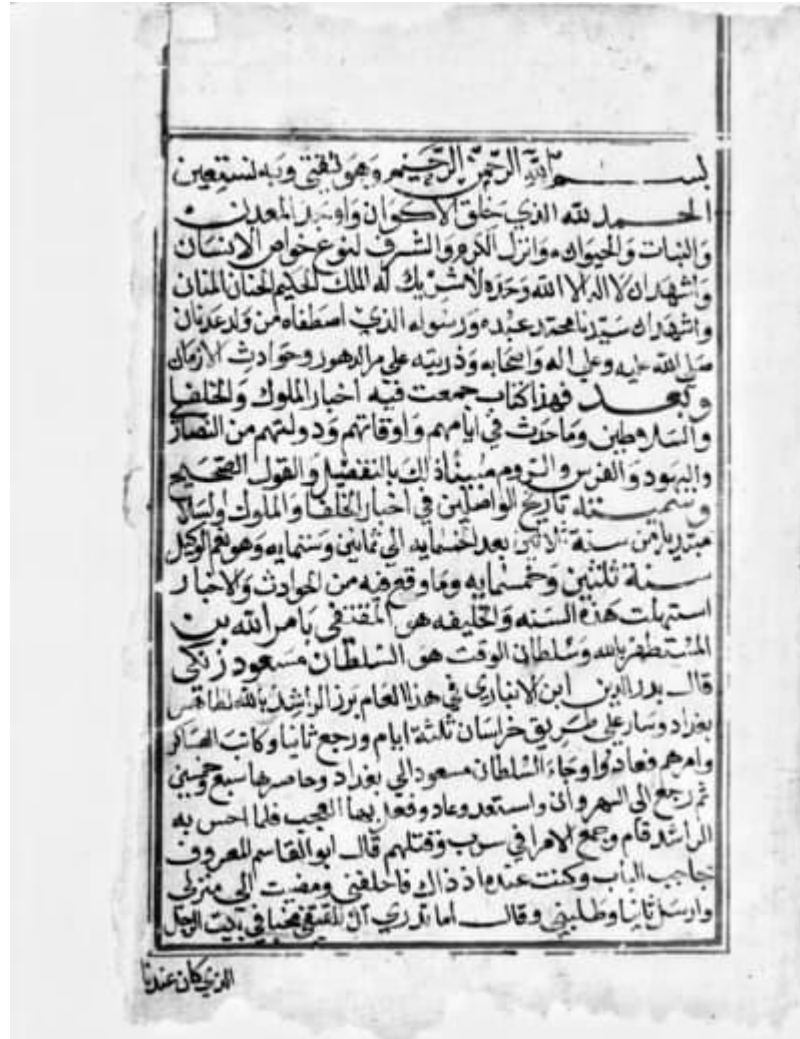 بســـــم الله الرحمن الرحيم وهو ثقتي وبه نستعين
الحمد لله الذي خلق الاكوان واوجد المعدن
والنبات والحيوان وانزل الكرم والشرف لنوع خواص الانسان
واشهد ان لا اله الا الله وحده لا شريك له الملك الحكيم الحنان المنان
واشهد ان سيدنا محمد عبده ورسوله الذي اصطفاه من ولد عدنان
صلى الله عليه وعلي اله واصحابه وذريته علي مر الدهور وحوادث الازمان
وبعد فهذا كتاب جمعت فيه اخبار الملوك والخلفا
والسلاطين وما حدث في ايامهم واوقاتهم ودولتهم من النصارى
واليهود والفرس والروم مبينا ذالك بالتفضيل والقول الصحيح
وسميته تاريخ الواصلين في اخبار الخلفا والملوك والسلا
مبتديا من سنة ثلاثين بعد الخسمايه الي ثمانين وستمايه وهو نعم الوكيل
سنة ثلثين وخمسمايه وما وقع فيه من الحوادث والاخبار
استهلت هذه السنه والخليفه هو المقتفي بامر الله بن
المستظهر بالله وسلطان الوقت هو السلطان مسعود زنكي
قال بدر الدين ابن الانباري في هذا العام برز الراشد بالله لطا
بغداد وسار علي طريق خراسان ثلثة ايام ورجع ثانيا وكاتب العساكر
وامرهم فعادوا وجاء السلطان مسعود الي بغداد وحاصرها سبع وخمسين
ثم رجع الي النهروان واستعد وعاد وفعل بهما العجب فلما احس به
الراشد قام وجمع الامرا في سرب وقتلهم قال ابو القاسم المعروف
بحاجب الباب وكنت عنده اذ ذاك فاحلفني ومضيت الى منزلي
وارسل ثانيا وطلبني وقال اما تدري ان المقتفي مخبيا في بيت الرجل
الذي كان عندنا